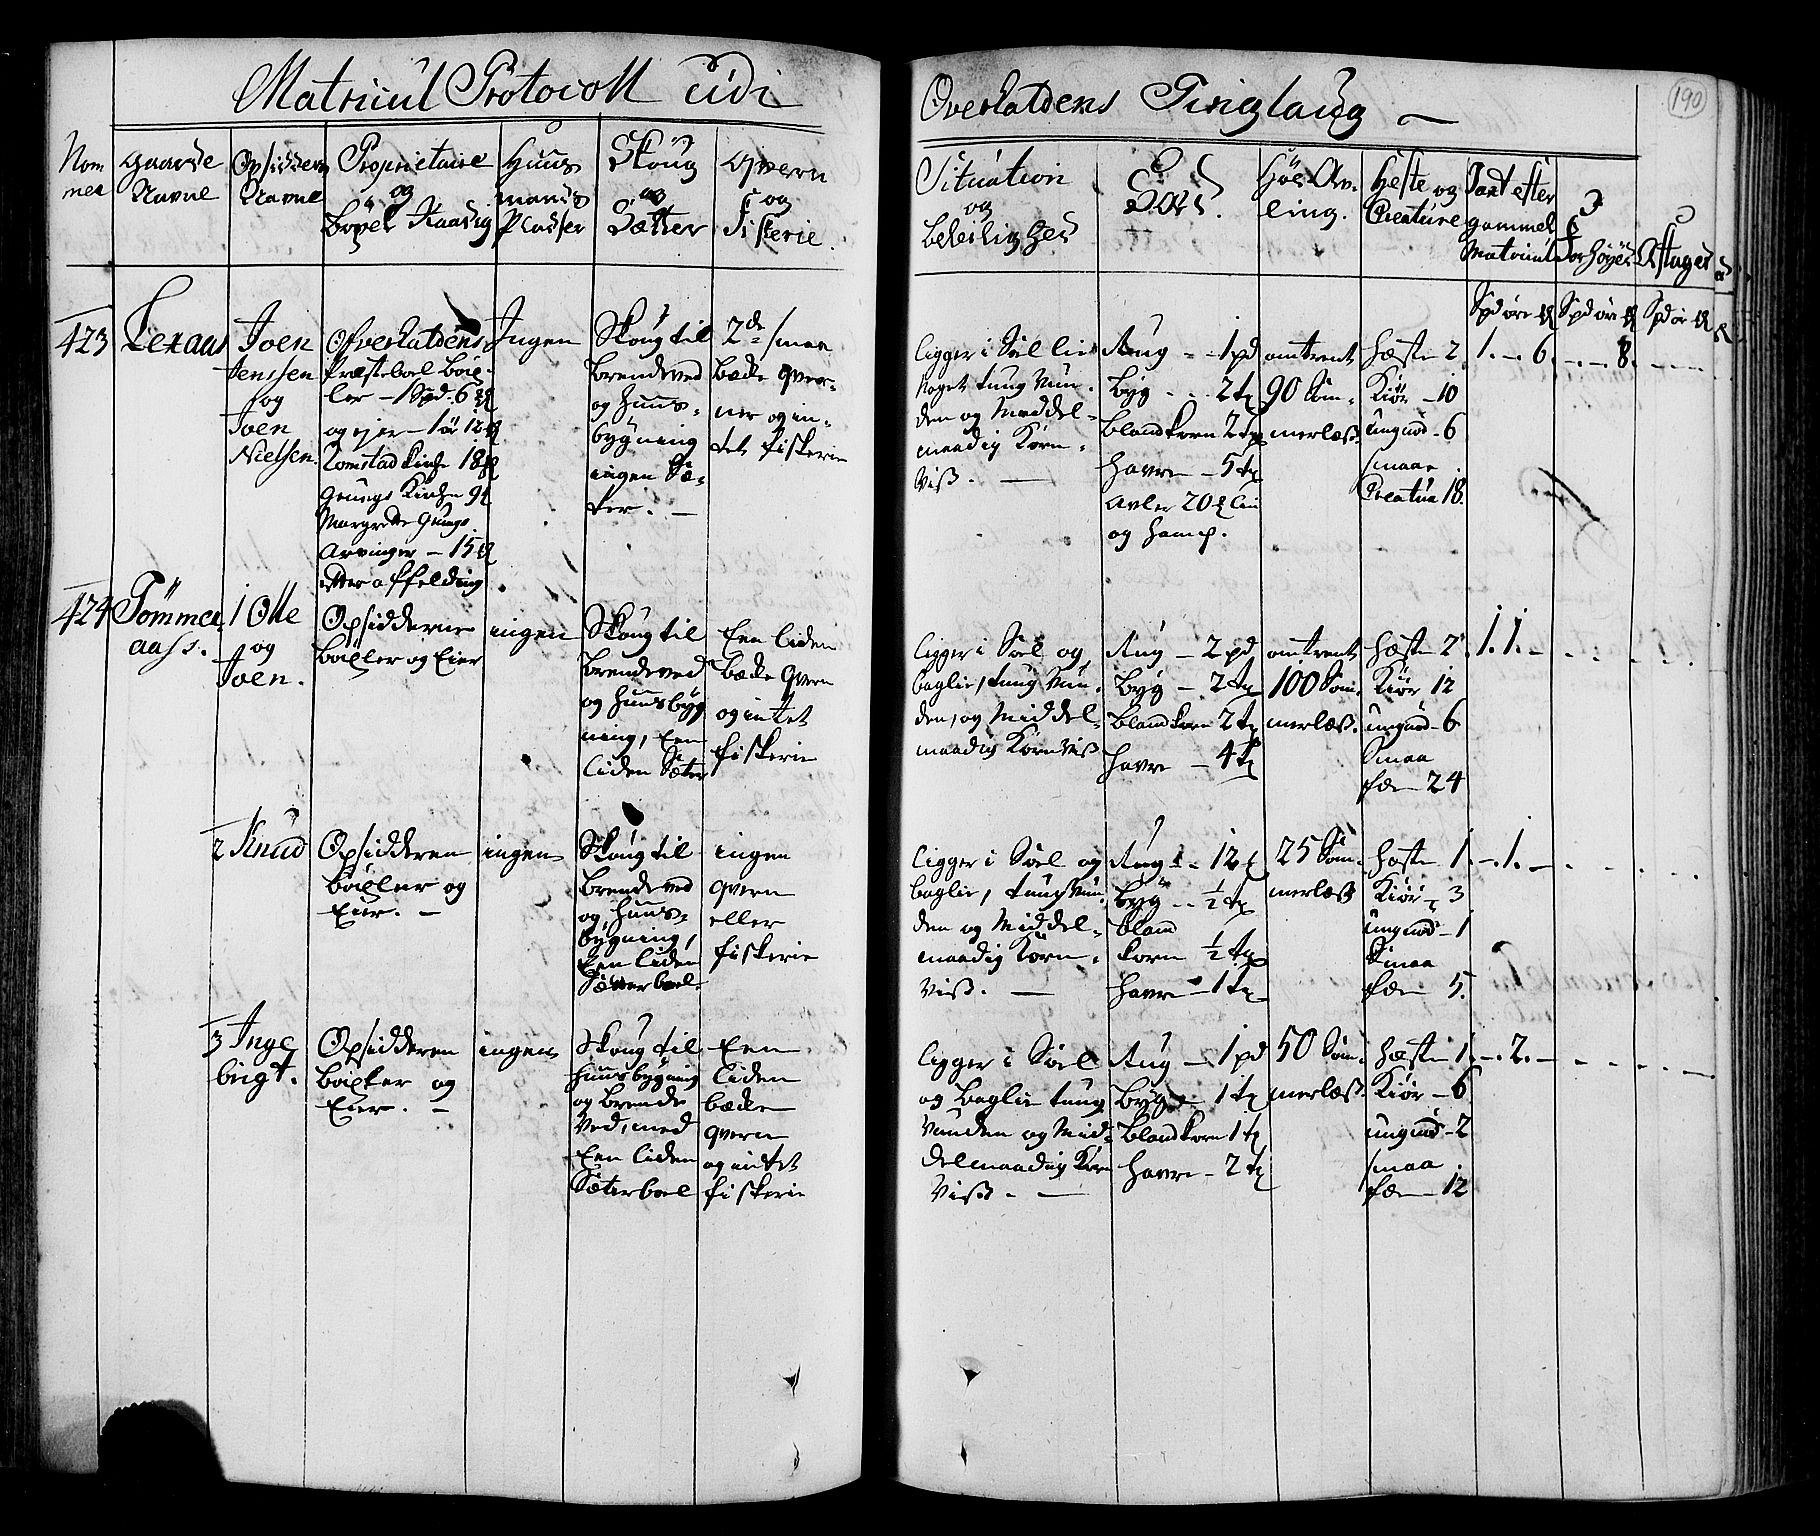 Matricul Protocoll udi
Overhaldens Tinglaug
190
Nom
mer
Gaarde
Navne
Opsidder
Navne
Proprietaire
og
Böxel Raadig
Huus
mands
Pladser
Skoug
og
Sætter
Qvern
og
Fiskerie.
Situation
og
Beleilighed
Sæd.
Höe Av-
ling.
Heste og
Creature
Taxt efter
gammel
Matricul
Forhöyes
Aftages
Spd öre
Spd öre
Spd ör
423
Joen
Jenssen
og
Joen
Nielsen.
Ofverhaldens
Præstebol böx-
ler - 1 Spd. 6
og ejer - 1 ör 12
Kirche 18
Kirche 9
Margrette
Arvinger - 15
efter affelding
Ingen
Skoug til
brendeved
og huus-
bygning
ingen Sæ-
ter. -
2de smaa
bæcke qver-
ner og in-
tet fiskerie
ligger i Soel lie
noget tung vun-
den og Meddel-
maadig Korn-
viß. -
Rug - 1 pd
byg - 2 tr
blandkorn 2 tr
havre - 5 tr
avler 20 lin
og hamp.
omtrent
90 Som-
merlæß.
Hæste 2.
Kiör - 10
ungnöd - 6
smaae
Creatur 18.
1. - 6. - . - 8. -
424
Tömmer
aass.
1 Olle
og
Joen.
Opsidderne
böxler og Eier
ingen
Skoug til
brendeved
og huusbyg
ning, Een
liden Sæter
Een liden
bæcke qvern
og intet
fiskerie
ligger i Soel og
baglie, tung vun-
den, og Middel-
maadig Kornviß
Rug - 2 pd
byg - 2 tr
blandkorn 2 tr
havre - 4 tr
omtrent
100 Som-
merlæß.
Hæste 2.
Kiör 12
ungnöd - 6
Smaa
fæ - 24
1. 1. -
2 Knud
Opsidderen
böxler og
Eier. -
ingen
Skoug til
brendeved
og huus-
bygning,
Een liden
Sætterboel.
ingen
qvern
eller
fiskerie
ligger i Soel og
baglie, tung vun-
den og Middel-
maadig Korn-
viß. -
Rug - 1 1/2 tr
byg - 1/2 tr
bland
korn 1/2 tr
havre - 1 tr
25 Som-
merlæß
Hæste 1.
Kiör - 3
ungnöd - 1
Smaa
fæ 5.
- 1. -
3 Inge
brigt.
Opsidderen
böxler og
Eier. -
ingen
Skoug til
huusbygning
og brende
ved, med
Een liden
Sæterboel
Een
liden
bæcke
qvern
og intet
fiskerie
ligger i Soel
og baglie tung
vunden og Mid-
delmaadig Korn
viß. -
Rug - 1 pd
byg - 1 tr
blandkorn 1 tr
havre - 2 tr
50 Som-
merlæß.
Hæste 1.
Kiör - 6
ungnöd - 2
smaa
fæ - 12
- 2. -